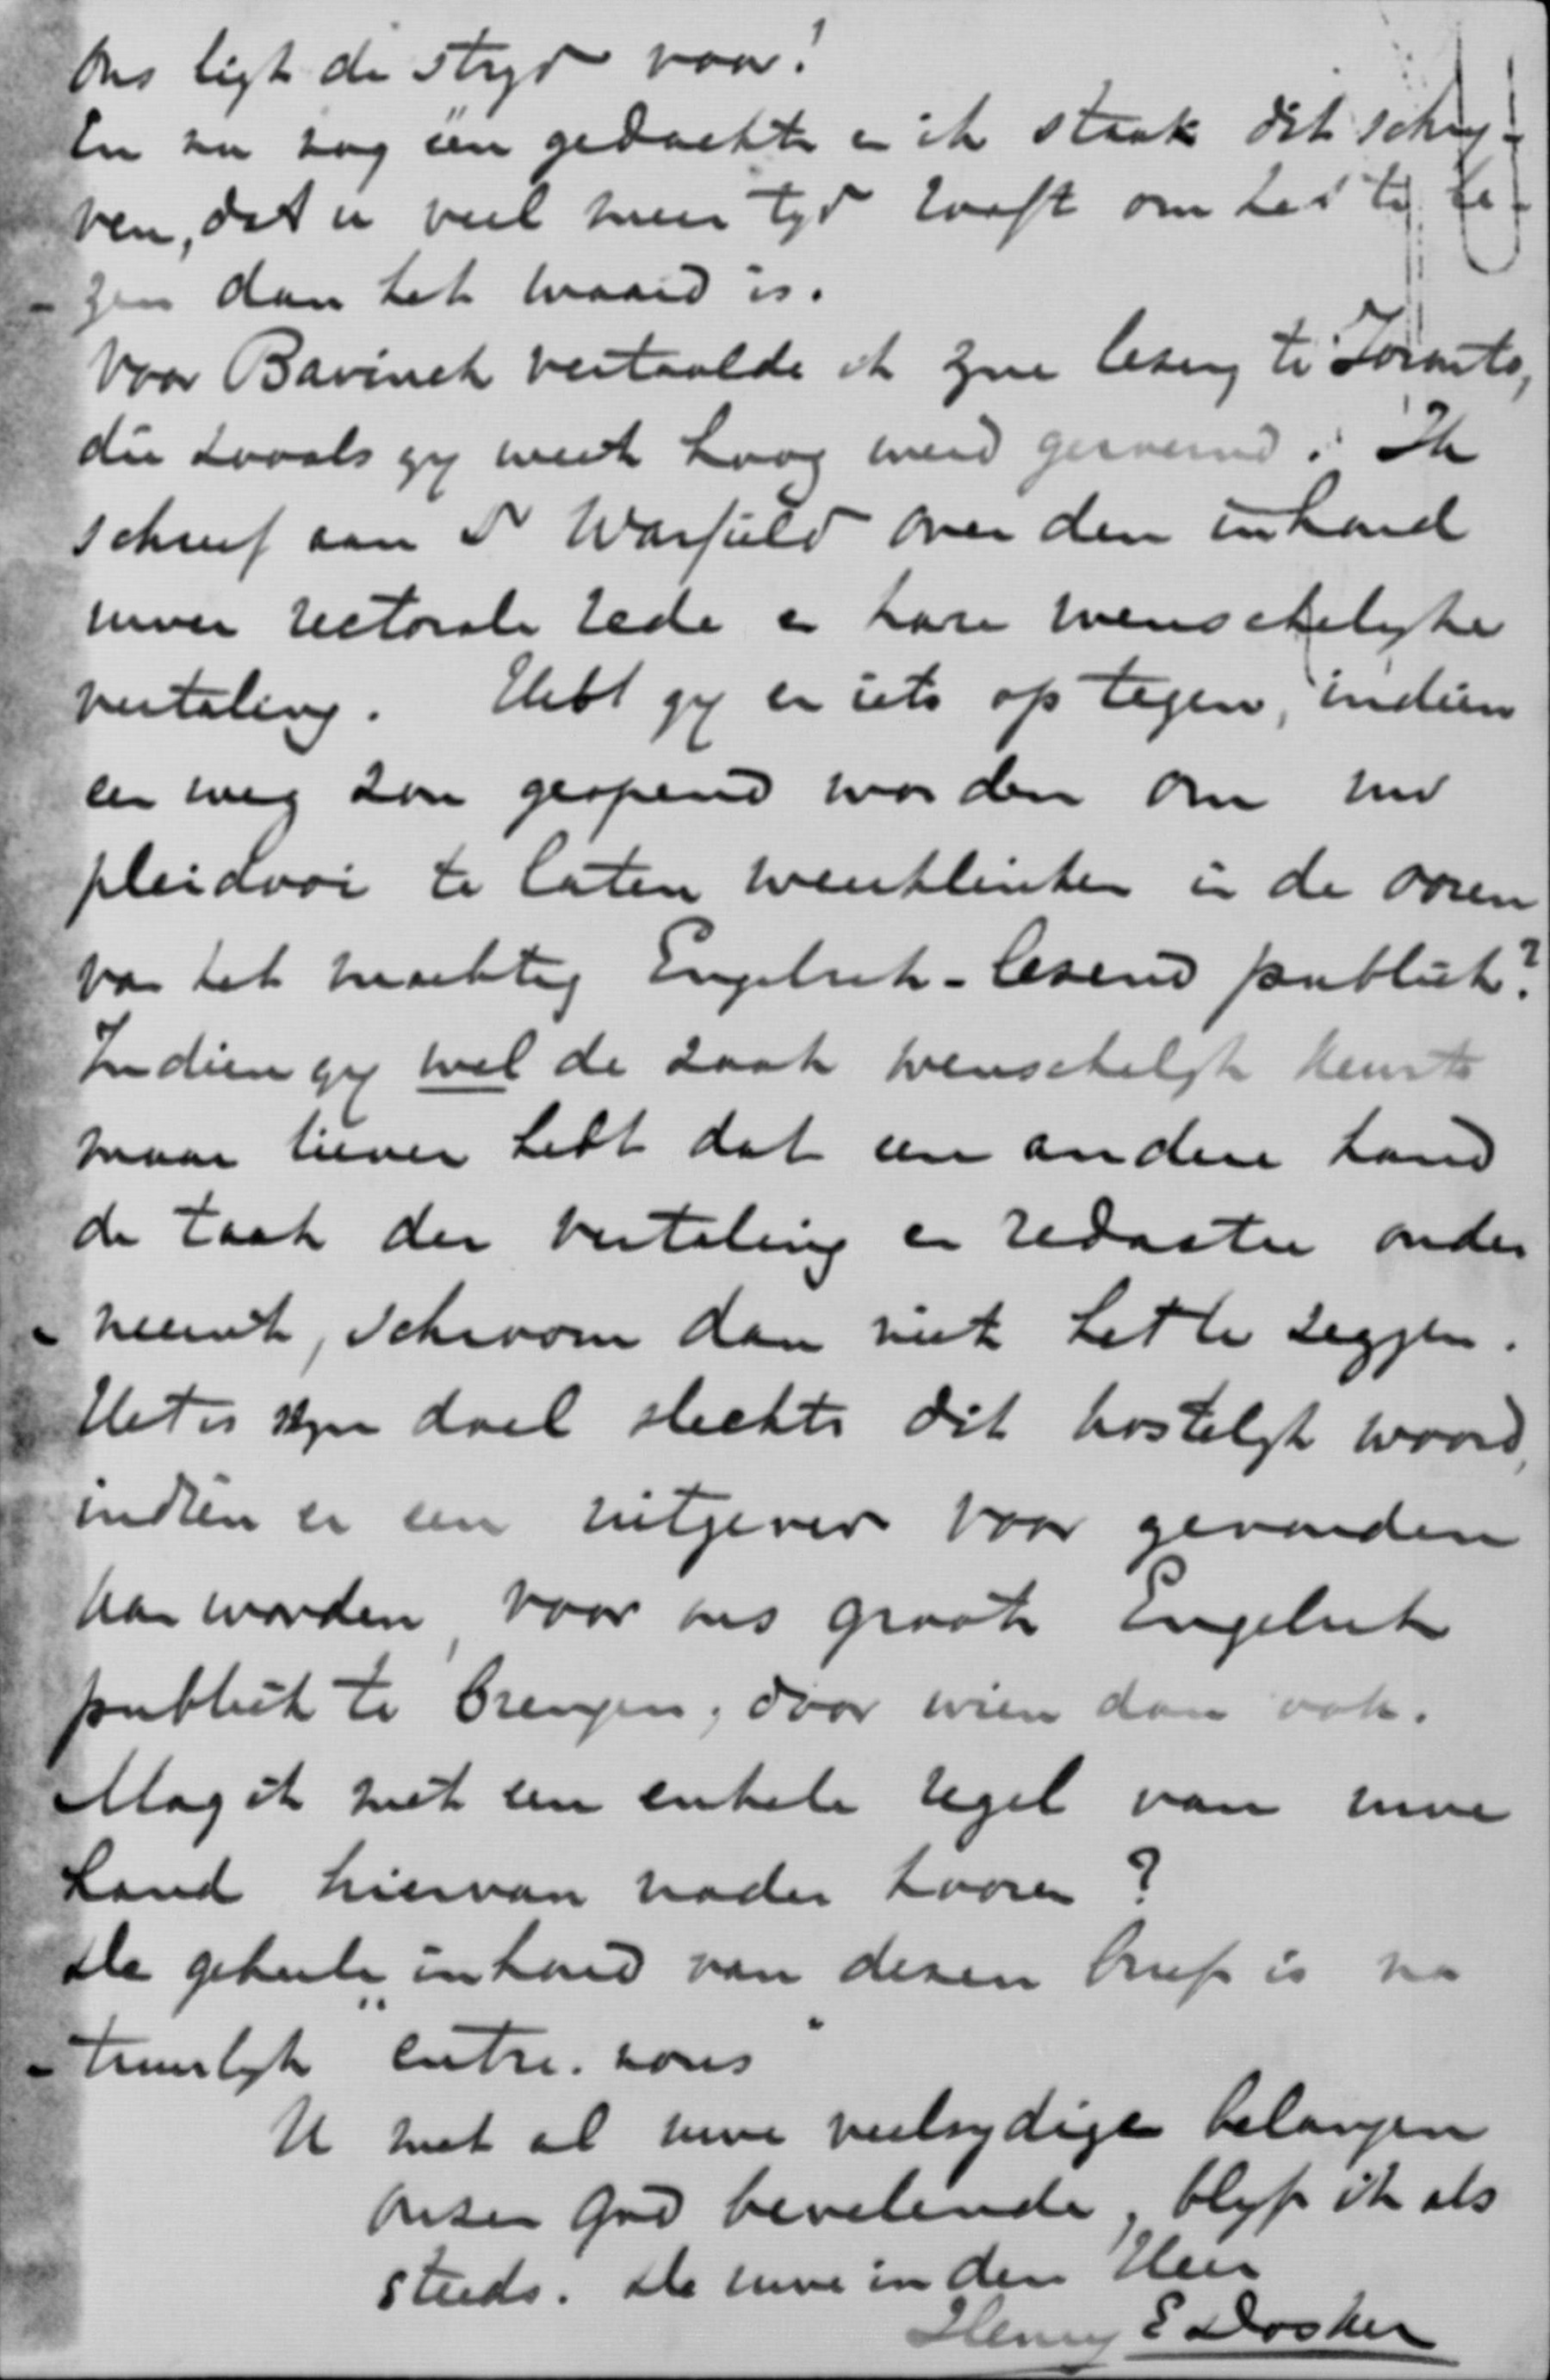 Ons ligt de stryd voor!
En nu nog één gedachte en ik staak dit schry-
ven, dat u veel meer tyd rooft om het te le-
-zen dan het waard is.
Voor Bavinck vertaalde ik zyne lezing te Toronto,
die zooals gy weet hoog werd geroemd. Ik
schreef aan Dr Warfield over den inhoud
uwer rectorale rede en hare wenschelyke
vertaling. Hebt gy er iets op tegen, indien
een weg zou geopend worden om uw
pleidooi te laten weerklinken in de ooren
van het machtig Engelsch-lezend publiek?
Indien gy wel de zaak wenschelyk keurt
maar liever hebt dat een andere hand
de taak der vertaling en redactie onder
-neemt, schroom dan niet het te zeggen.
Het is myn doel slechts dit kostelyk woord,
indien er een uitgever voor gevonden
kan worden, voor ons groot Engelsch
publiek te brengen, door wien dan ook.
Mag ik met een enkele regel van uwe
hand hiervan nader hooren?
De geheele inhoud van dezen brief is na
-tuurlyk "entre-nous"
U met al uwe veelzydige belangen
onzen God bevelende, blyf ik als
steeds. de uwe in den Heer
Henry E Dosker